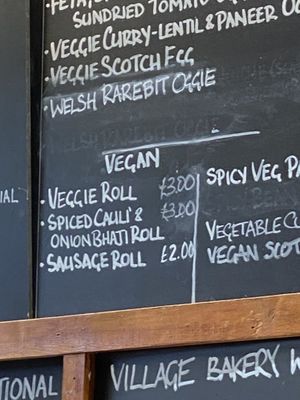 SUNDRIED TOMATO
VEGGIE CURRY-LENTIL & PANEER
VEGGIE SCOTCH EGG
WELSH RAREBIT OGGIE
VEGAN
VEGGIE ROLL £3.00
SPICED CAULI &
ONION BHAJI ROLL £3.00
SAUSAGE ROLL £2.00
SPICY VEG
VEGETABLE
VEGAN
VILLAGE BAKERY